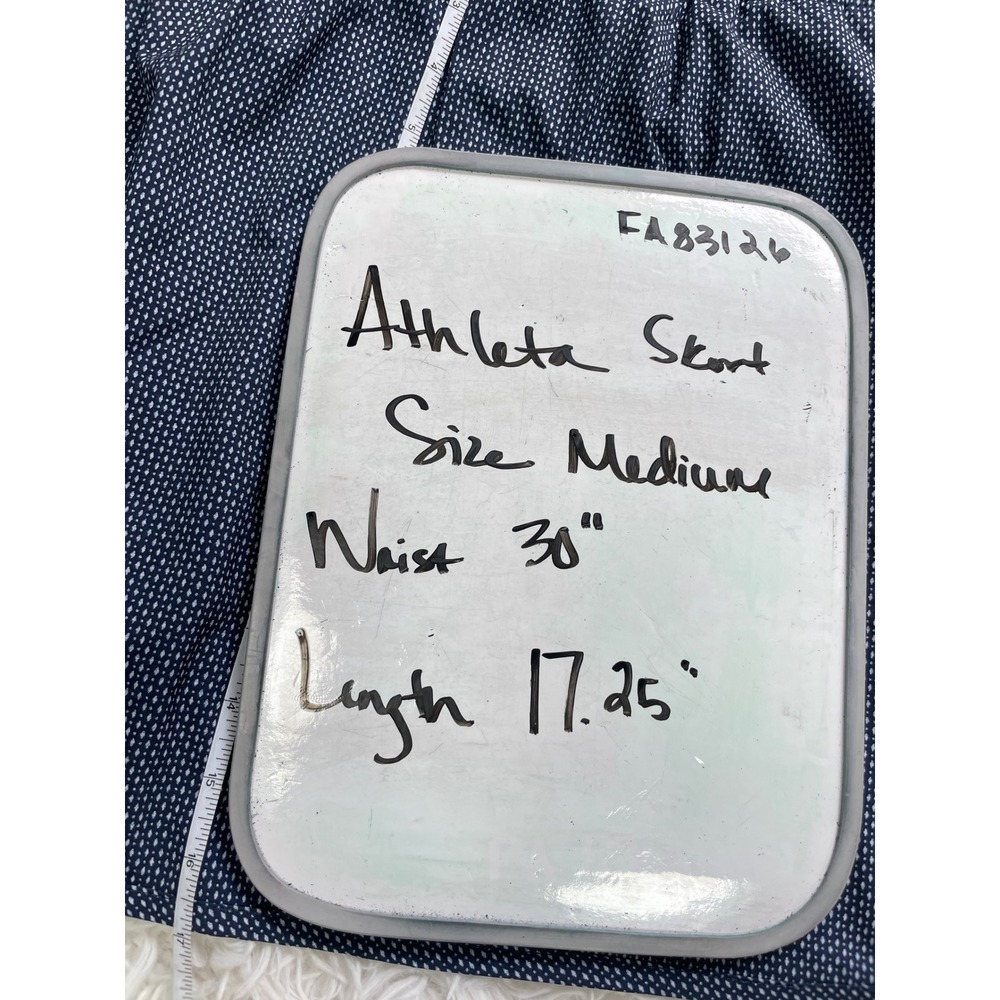 3
4
5
FA83126
Athleta Skort
Size Medium
Waist 30"
Length 17.25"
14
15
16
17